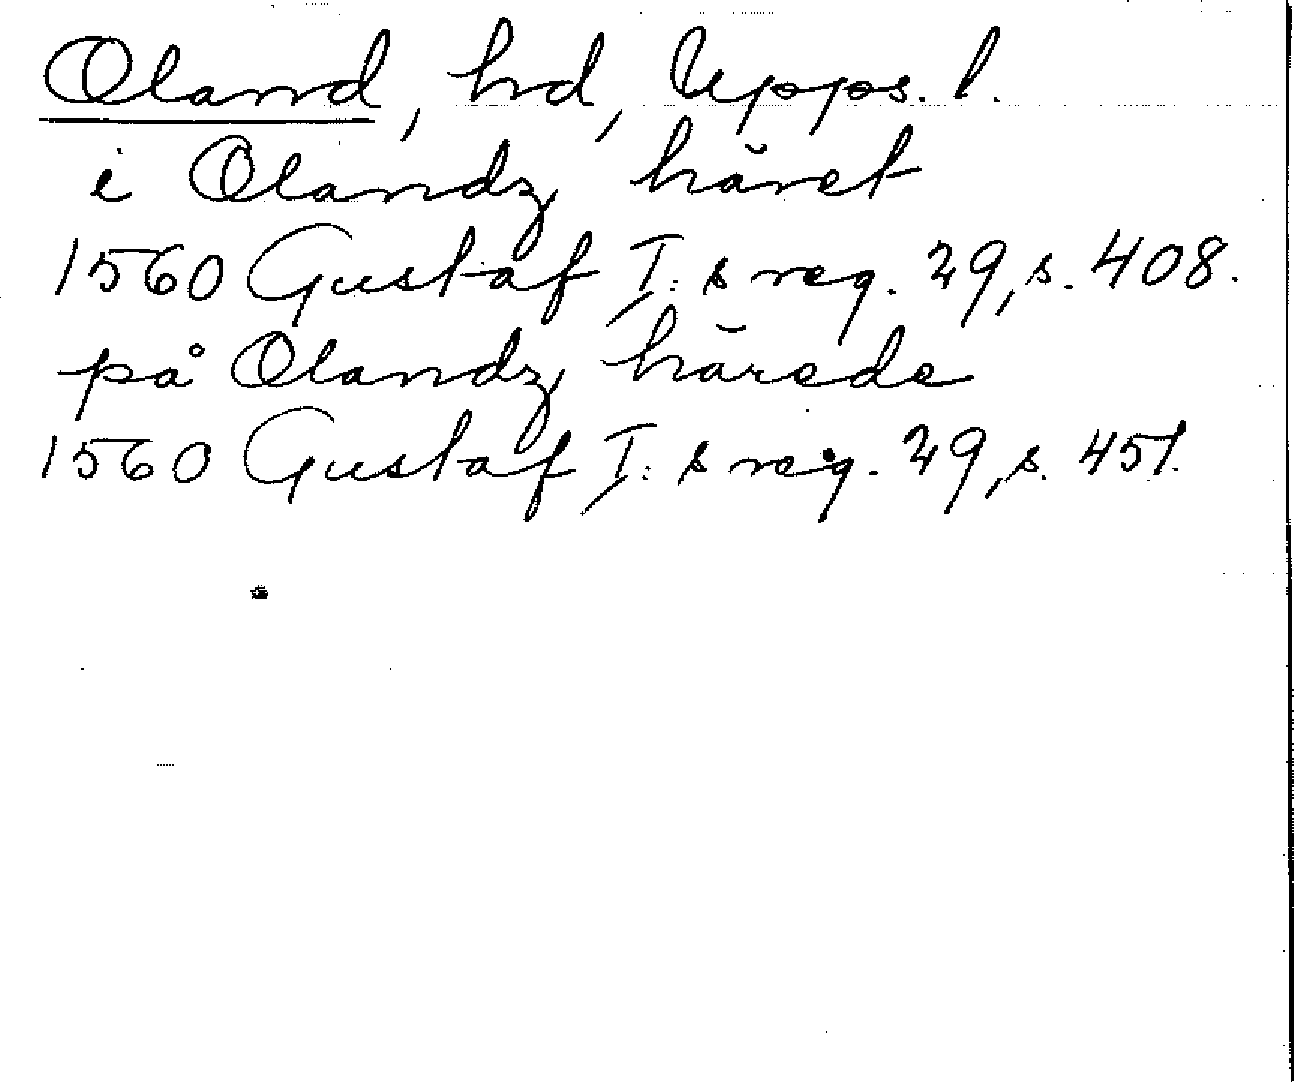 Oland, hd, Upps. l.
i Olandz häret
1560 Gustaf I:s reg. 29, s. 408.
på Olandz härede
1560 Gustaf I:s reg. 29, s. 451.